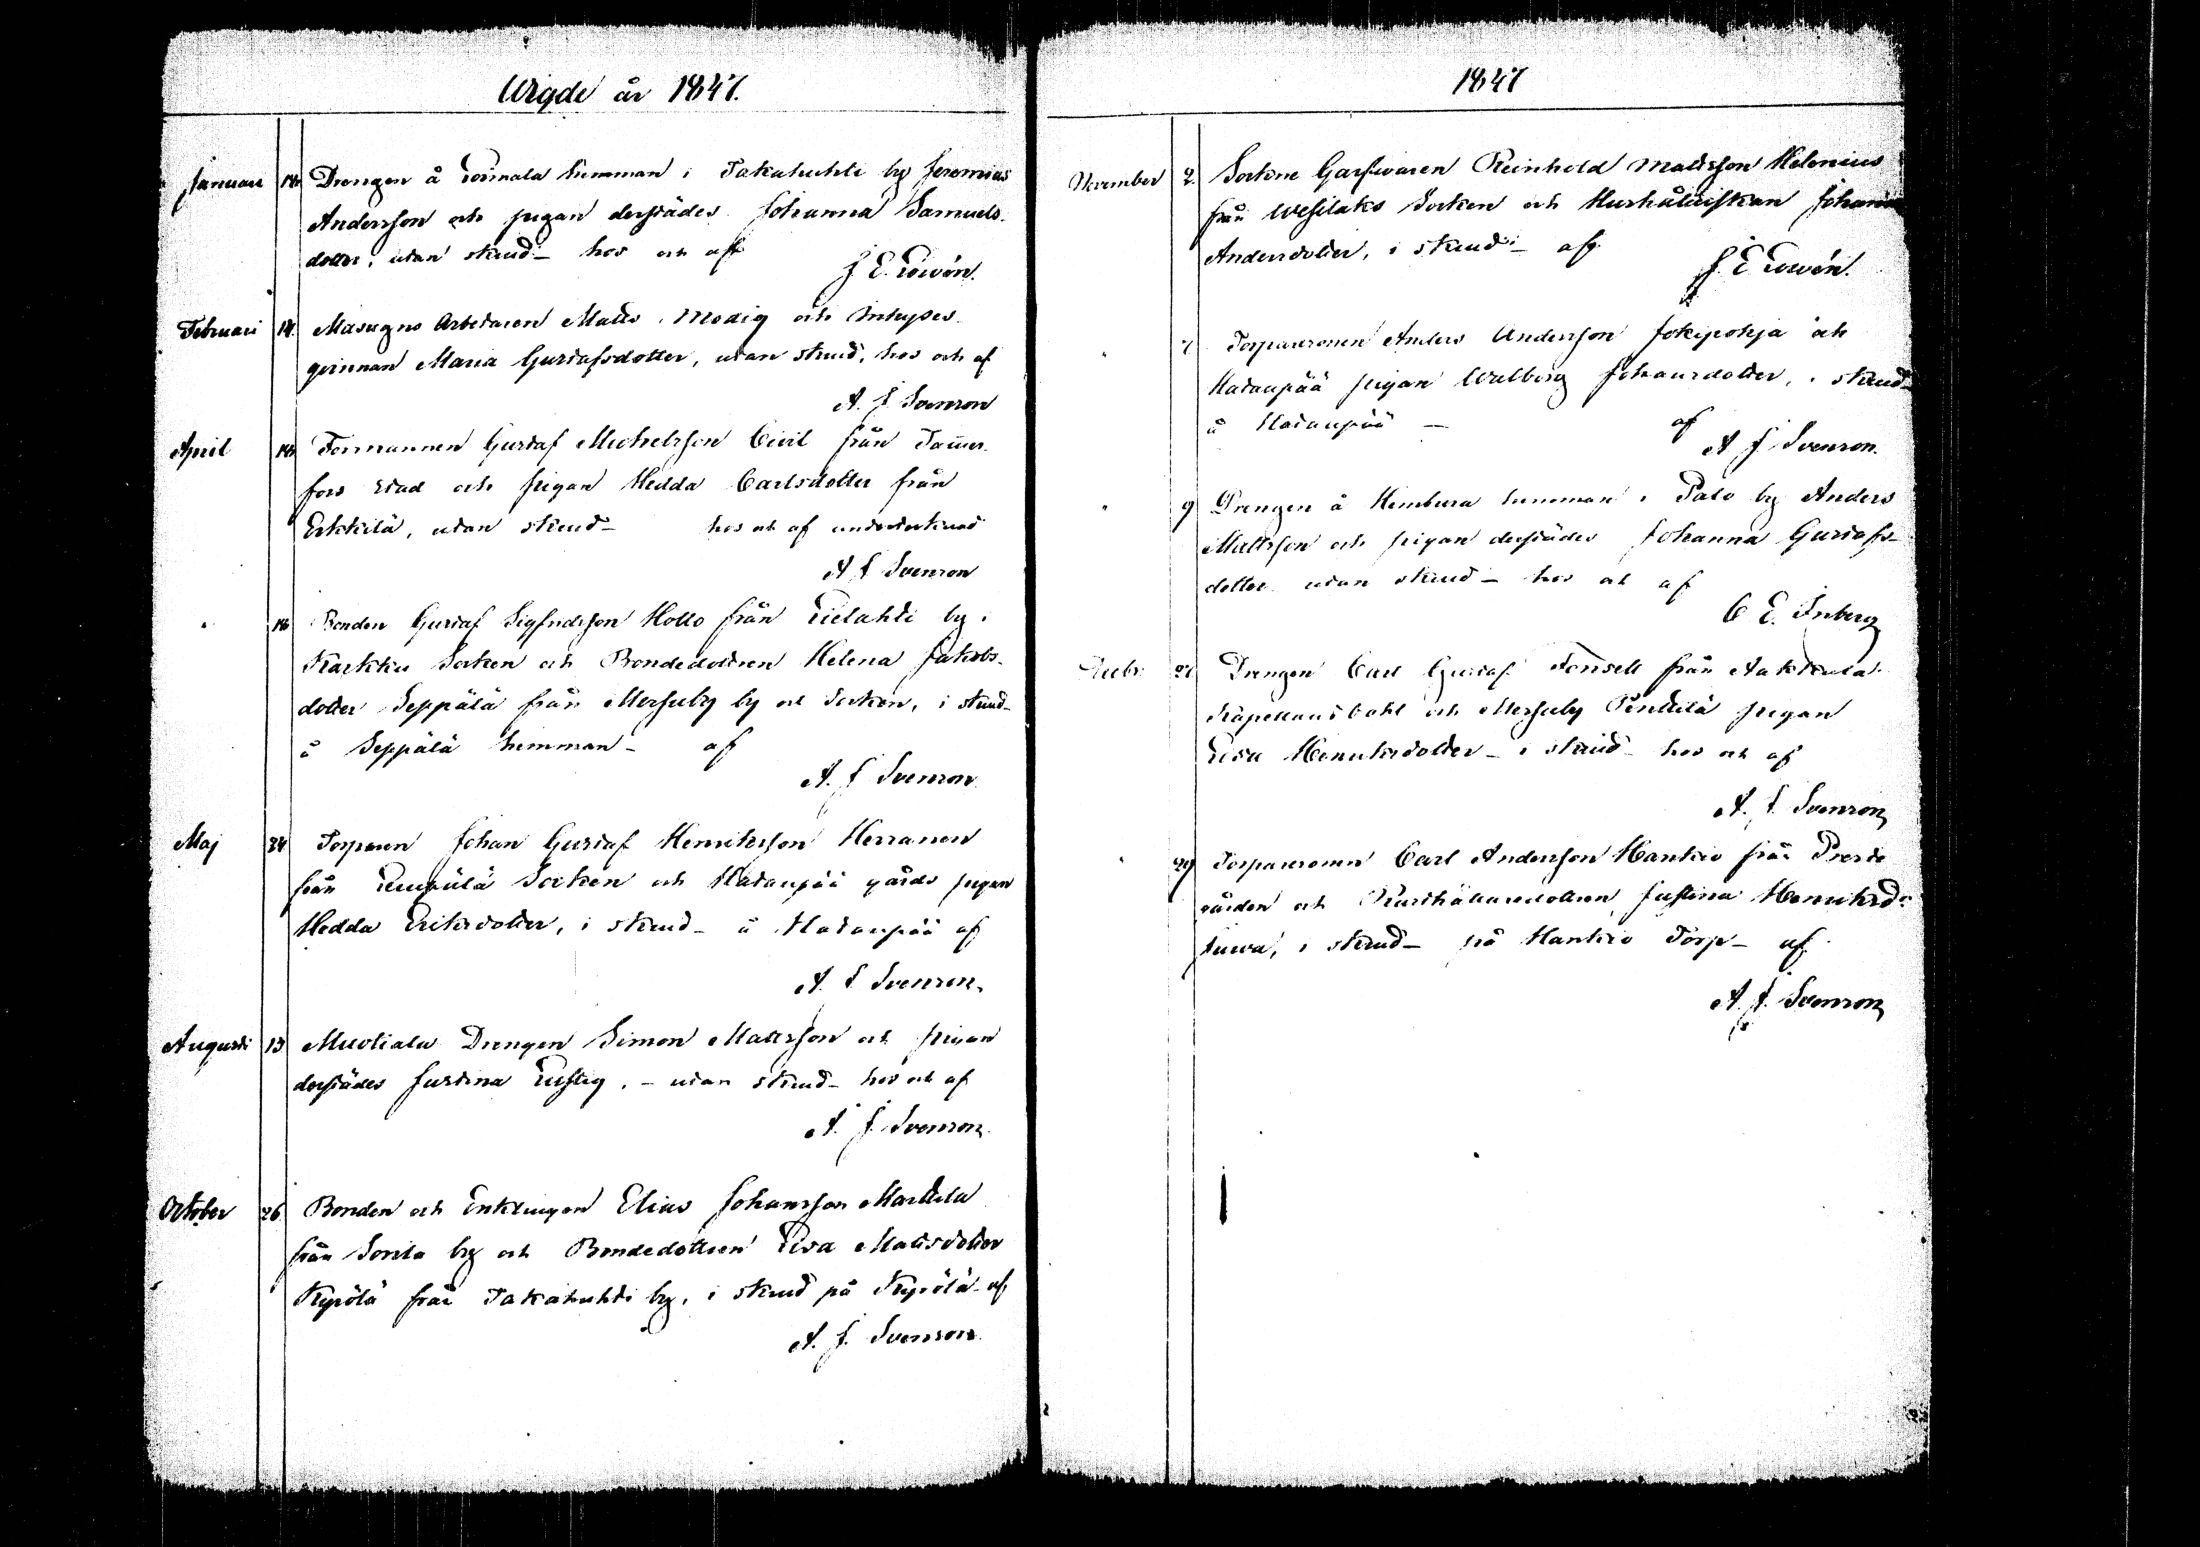 Wigde år 1847.
Januari 14 Drengen å Tormala hemman i Takahuhti by Jeremias
Andersson och pigan derstädes Johanna Samuels-
dotter, utan skrud - hos och af
J. E. Lowén.
Februari 14. Masugns Arbetaren Matts Modig och Inhyses-
qvinnan Maria Gustafsdotter, utan skrud, hos och af
A. J. Svenson
April Formannen Gustaf Michelsson Civil från Tammer-
fors stad och pigan Hedda Carlsdotter från
Erkkilä, utan skrud - hos och af undertecknad
A. J. Svenson
" Bonden Gustaf Sigfridsson Hollo från Lielahti by i
Karkku Socken och Bondedottren Helena Jakobs-
dotter Seppälä från Messuby by och Socken, i skrud -
å Seppälä hemman - af
A. J. Svenson
Maj 24 Torparen Johan Gustaf Henriksson Herranen
från Lempälä Socken och Hatanpää gårds pigan
Hedda Eriksdotter, i skrud - å Hatanpää af
A. J. Svenson.
Augusti 13 Muotiala Drengen Simon Mattsson och pigan
derstädes Justina Lustig, - utan skrud - hos och af
A. J. Svenson.
October 26 Bonden och Enklingen Elias Johansson Marttila
från Sorila by och Bondedottren Lisa Mattsdotter
Kyrölä från Takahuhti by, i skrud på Kyrölä - af
A. J. Svenson
1847
November 2. Sockne Garfwaren Reinhold Mattsson Helenius
från Wesilaks Socken och Hushållerskan Johanna
Andersdotter, i skrud - af
J. E. Lowén.
" 7 Torparesonen Anders Andersson Jokipohja och
Hatanpää pigan Walborg Johansdotter, i skrud -
å Hatanpää - af
A. J. Svenson.
" 9 Drengen å Himbura hemman i Palo by Anders
Mattsson och pigan derstädes Johanna Gustafs-
dotter utan skrud - hos och af
C. E. Inberg
27 Drengen Carl Gustaf Fonsell från Aakkula
Kapellansbohl och Messuby Penttilä pigan
Lisa Henriksdotter - i skrud - hos och af
A. J. Svenson
" 29 Torparesonen Carl Andersson Hankio från Prest-
gården och Rusthållaredottren Justina Henriksdr
i skrud - på Hankio Torp - af
A. J. Svenson